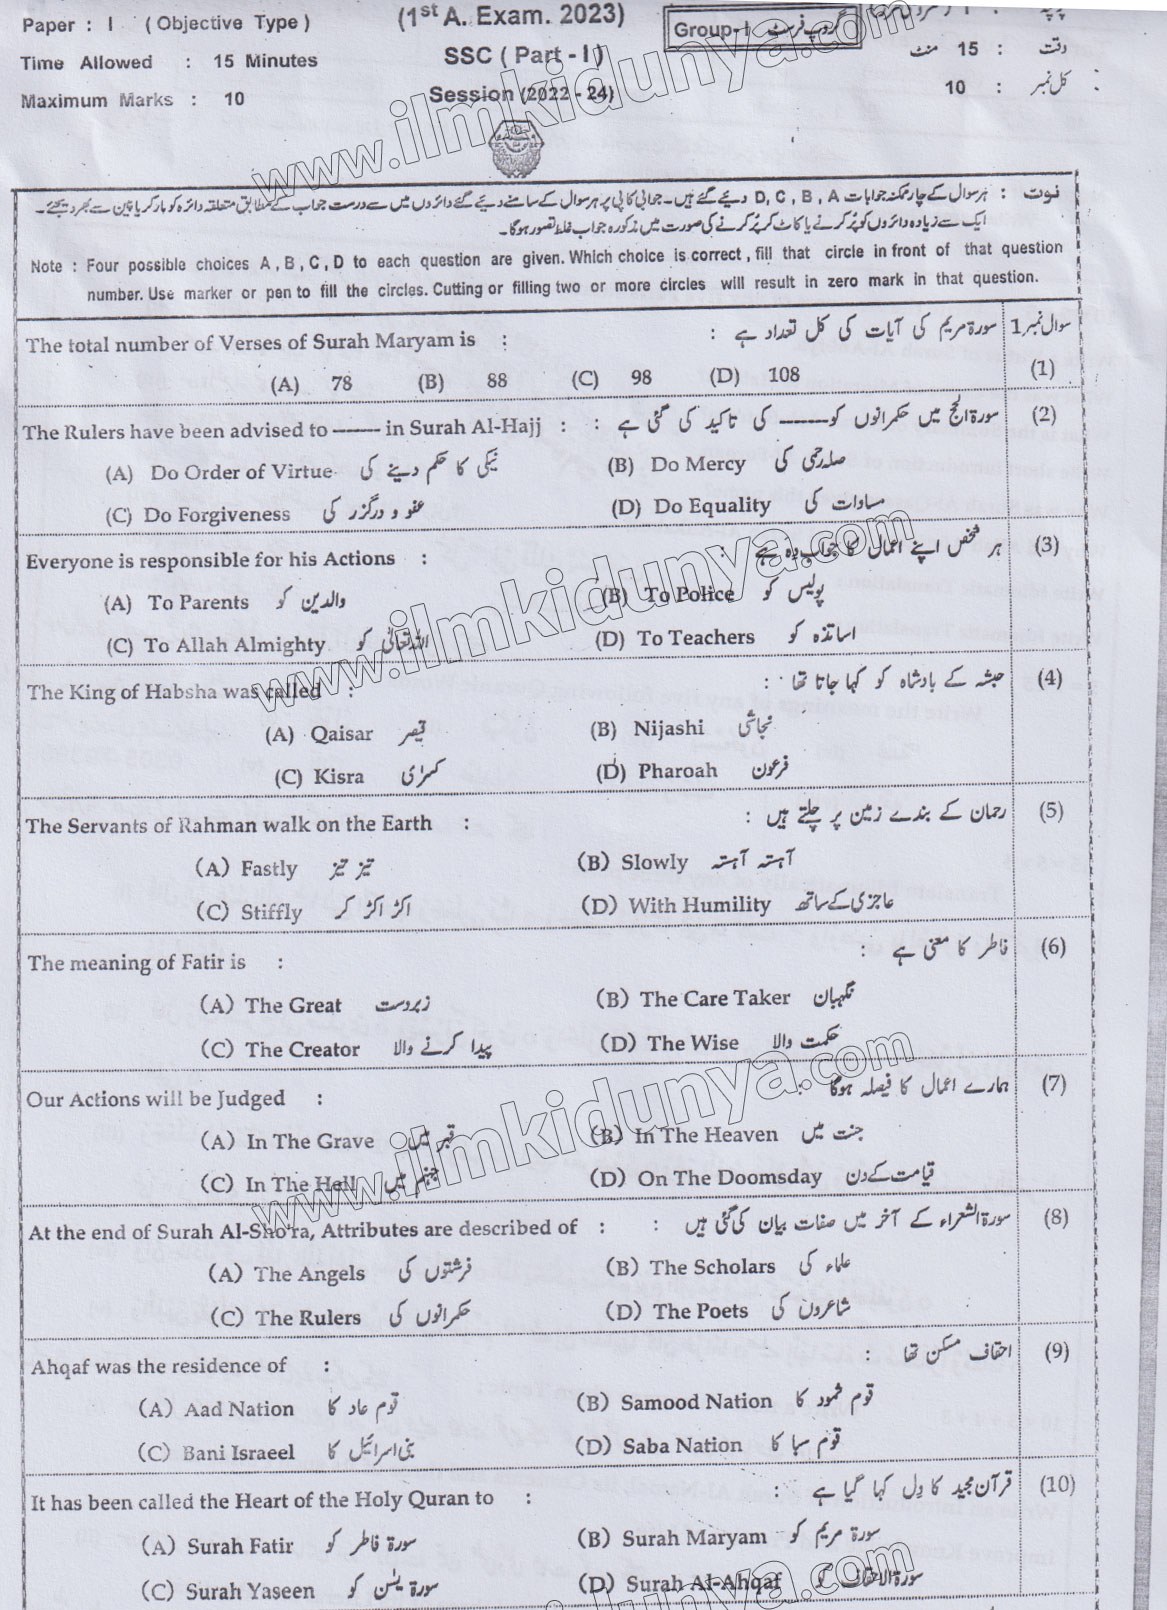 Paper : I ( Objective Type )
(1st A. Exam. 2023)
Group-I گروپ فرسٹ
Time Allowed : 15 Minutes
SSC ( Part - I )
وقت : 15 منٹ
Maximum Marks : 10
Session (2022 - 24)
کل نمبر : 10
نوٹ : ہر سوال کے چار ممکنہ جوابات D, C, B, A دیئے گئے ہیں۔ جوابی کاپی پر ہر سوال کے سامنے دیئے گئے دائروں میں سے درست جواب کے مطابق متعلقہ دائرہ کو مارکر یا پین سے بھر دیجئے۔
ایک سے زیادہ دائروں کو پُر کرنے یا کاٹ کر پُر کرنے کی صورت میں مذکورہ جواب غلط تصور ہوگا۔
Note : Four possible choices A, B, C, D to each question are given. Which choice is correct, fill that circle in front of that question
number. Use marker or pen to fill the circles. Cutting or filling two or more circles will result in zero mark in that question.
سوال نمبر 1
The total number of Verses of Surah Maryam is : سورۃ مریم کی آیات کی کل تعداد ہے : (1)
(A) 78 (B) 88 (C) 98 (D) 108
The Rulers have been advised to ------ in Surah Al-Hajj : سورۃ الحج میں حکمرانوں کو------ کی تاکید کی گئی ہے : (2)
(A) Do Order of Virtue نیکی کا حکم دینے کی (B) Do Mercy صلہ رحمی کی
(C) Do Forgiveness عفو و درگزر کی (D) Do Equality مساوات کی
Everyone is responsible for his Actions : ہر شخص اپنے اعمال کا جواب دہ ہے : (3)
(A) To Parents والدین کو (B) To Police پولیس کو
(C) To Allah Almighty اللہ تعالیٰ کو (D) To Teachers اساتذہ کو
The King of Habsha was called : حبشہ کے بادشاہ کو کہا جاتا تھا : (4)
(A) Qaisar قیصر (B) Nijashi نجاشی
(C) Kisra کسرٰی (D) Pharoah فرعون
The Servants of Rahman walk on the Earth : رحمان کے بندے زمین پر چلتے ہیں : (5)
(A) Fastly تیز تیز (B) Slowly آہستہ آہستہ
(C) Stiffly اکڑ اکڑ کر (D) With Humility عاجزی کے ساتھ
The meaning of Fatir is : فاطر کا معنی ہے : (6)
(A) The Great زبردست (B) The Care Taker نگہبان
(C) The Creator پیدا کرنے والا (D) The Wise حکمت والا
Our Actions will be Judged : ہمارے اعمال کا فیصلہ ہوگا : (7)
(A) In The Grave قبر میں (B) In The Heaven جنت میں
(C) In The Hell جہنم میں (D) On The Doomsday قیامت کے دن
At the end of Surah Al-Sho'ra, Attributes are described of : سورۃ الشعراء کے آخر میں صفات بیان کی گئی ہیں : (8)
(A) The Angels فرشتوں کی (B) The Scholars علماء کی
(C) The Rulers حکمرانوں کی (D) The Poets شاعروں کی
Ahqaf was the residence of : احقاف مسکن تھا : (9)
(A) Aad Nation قوم عاد کا (B) Samood Nation قوم ثمود کا
(C) Bani Israeel بنی اسرائیل کا (D) Saba Nation قوم سبا کا
It has been called the Heart of the Holy Quran to : قرآن مجید کا دل کہا گیا ہے : (10)
(A) Surah Fatir سورۃ فاطر کو (B) Surah Maryam سورۃ مریم کو
(C) Surah Yaseen سورۃ یٰسٓن کو (D) Surah Al-Ahqaf سورۃ الاحقاف کو
www.ilmkidunya.com
www.ilmkidunya.com
www.ilmkidunya.com
www.ilmkidunya.com